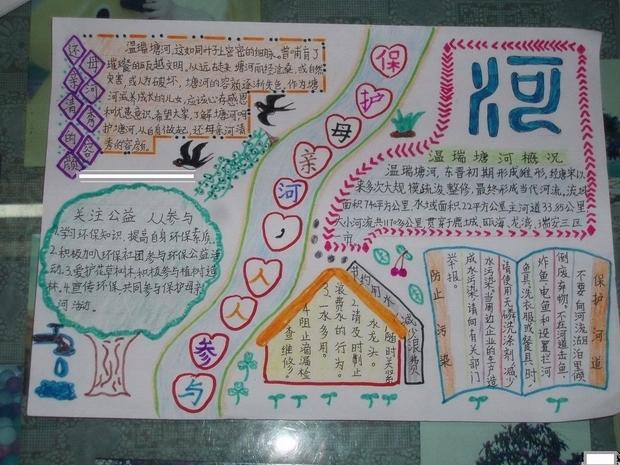 还母亲河清秀的容颜
温瑞塘河,这如同叶子上密密的细脉,曾哺育了
璀璨的瓯越文明,从远徒来,塘河而
灾害,或人为破坏,塘河的容颜逐渐失色,作为塘
河滋养成长的儿女,应该心存感恩
和忧患意识,希望大家,了解塘河,呵
护塘河,从自身做起,还母亲河清
秀的容颜。
保护母亲河,人人参与
河
温瑞塘河概况
温瑞塘河,东晋初期形成雏形,经唐宋以
来多次大规模疏浚整修,最终形成当代河流,流域
面积740平方公里,水域面积22平方公里主河道33.85公里,
大小河流共1170多公里贯穿鹿城,瓯海,龙湾,瑞安三区
一市
关注公益 人人参与
1.学习环保知识,提高自身环保素质。
2.积极加入环保社团参与环保公益活
动。3.爱护花草树木,积极参与植树造
林。4.宣传环保,共同参与保护母亲
河活动。
节约用水
减少浪费
1.随时关紧
水龙头。
2.请及时制止
浪费水的行为。
3.一水多用。
4.阻止滴漏检
查维修。
保护河道
不要向河流湖泊里倾
倒废弃物。不在河道击鱼,
炸鱼,电鱼和设置拦河
鱼具。洗衣服或餐具时,
请使用无磷洗涤剂,减少
水污染。当周边企业的生产造
成水污染,请向有关部门
举报。
防止污染